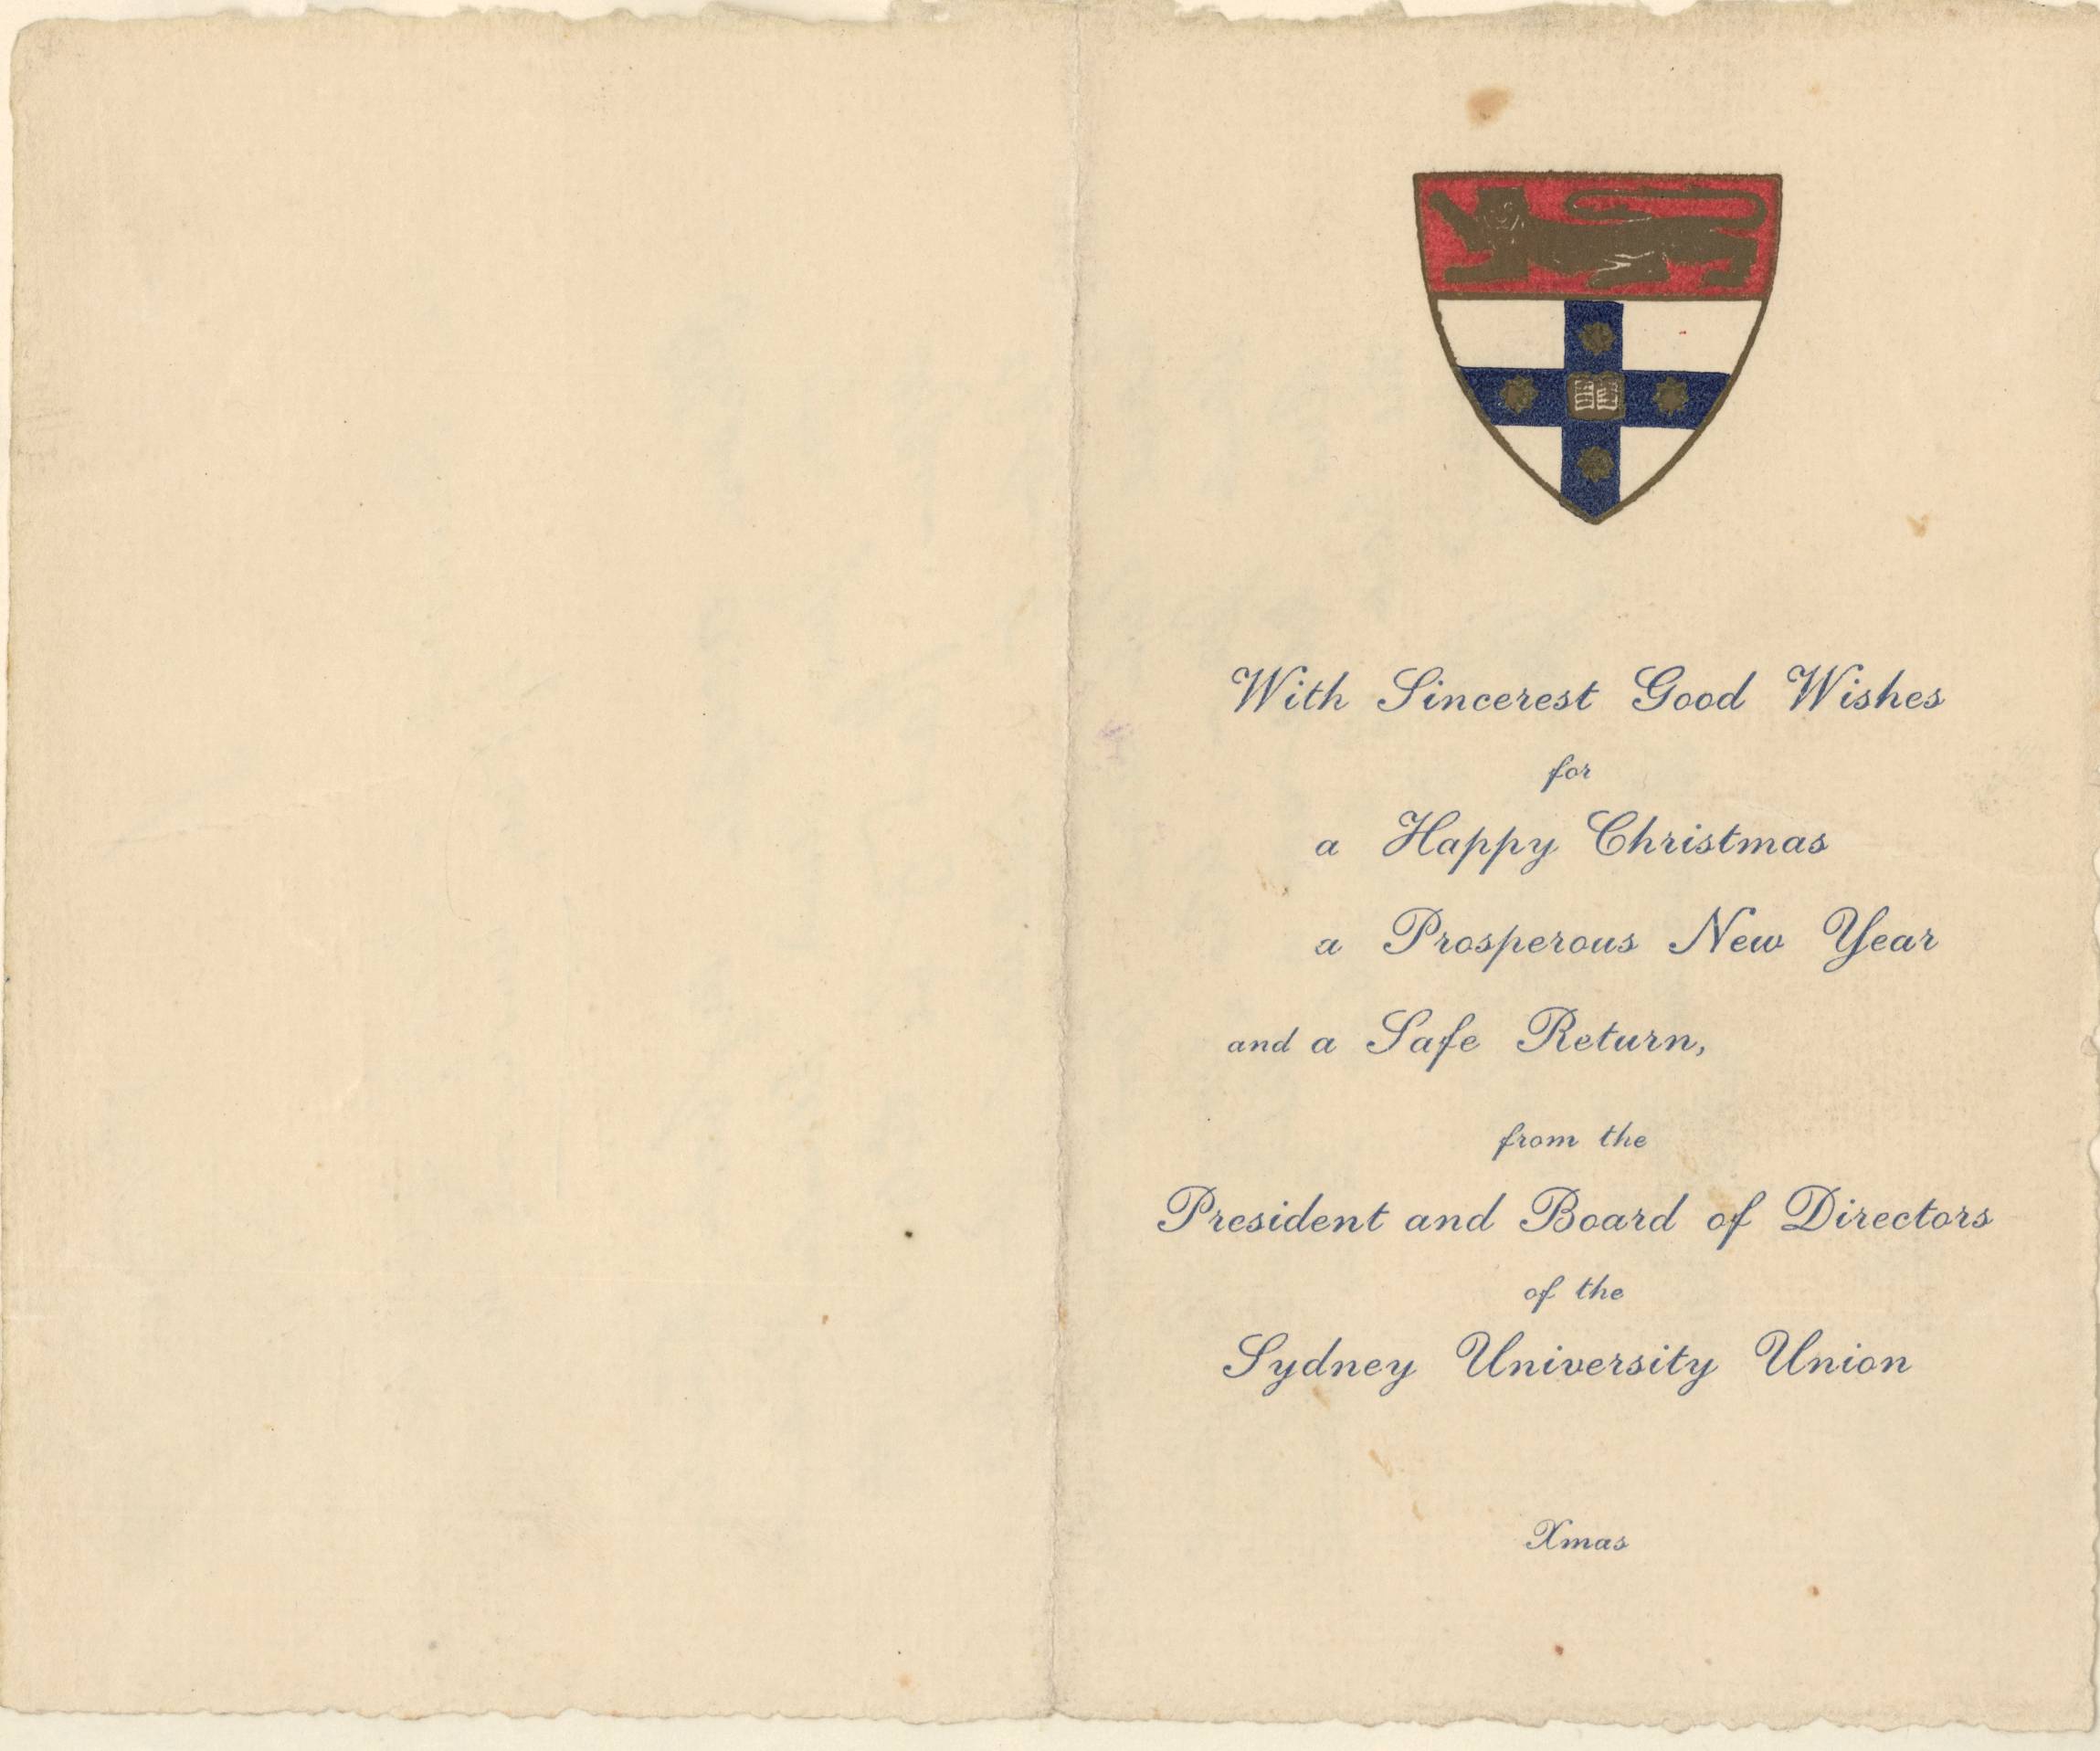 With Sincerest Good Wishes
for
a Happy Christmas
a Prosperous New Year
and a Safe Return,
from the
President and Board of Directors
of the
Sydney University Union
Xmas